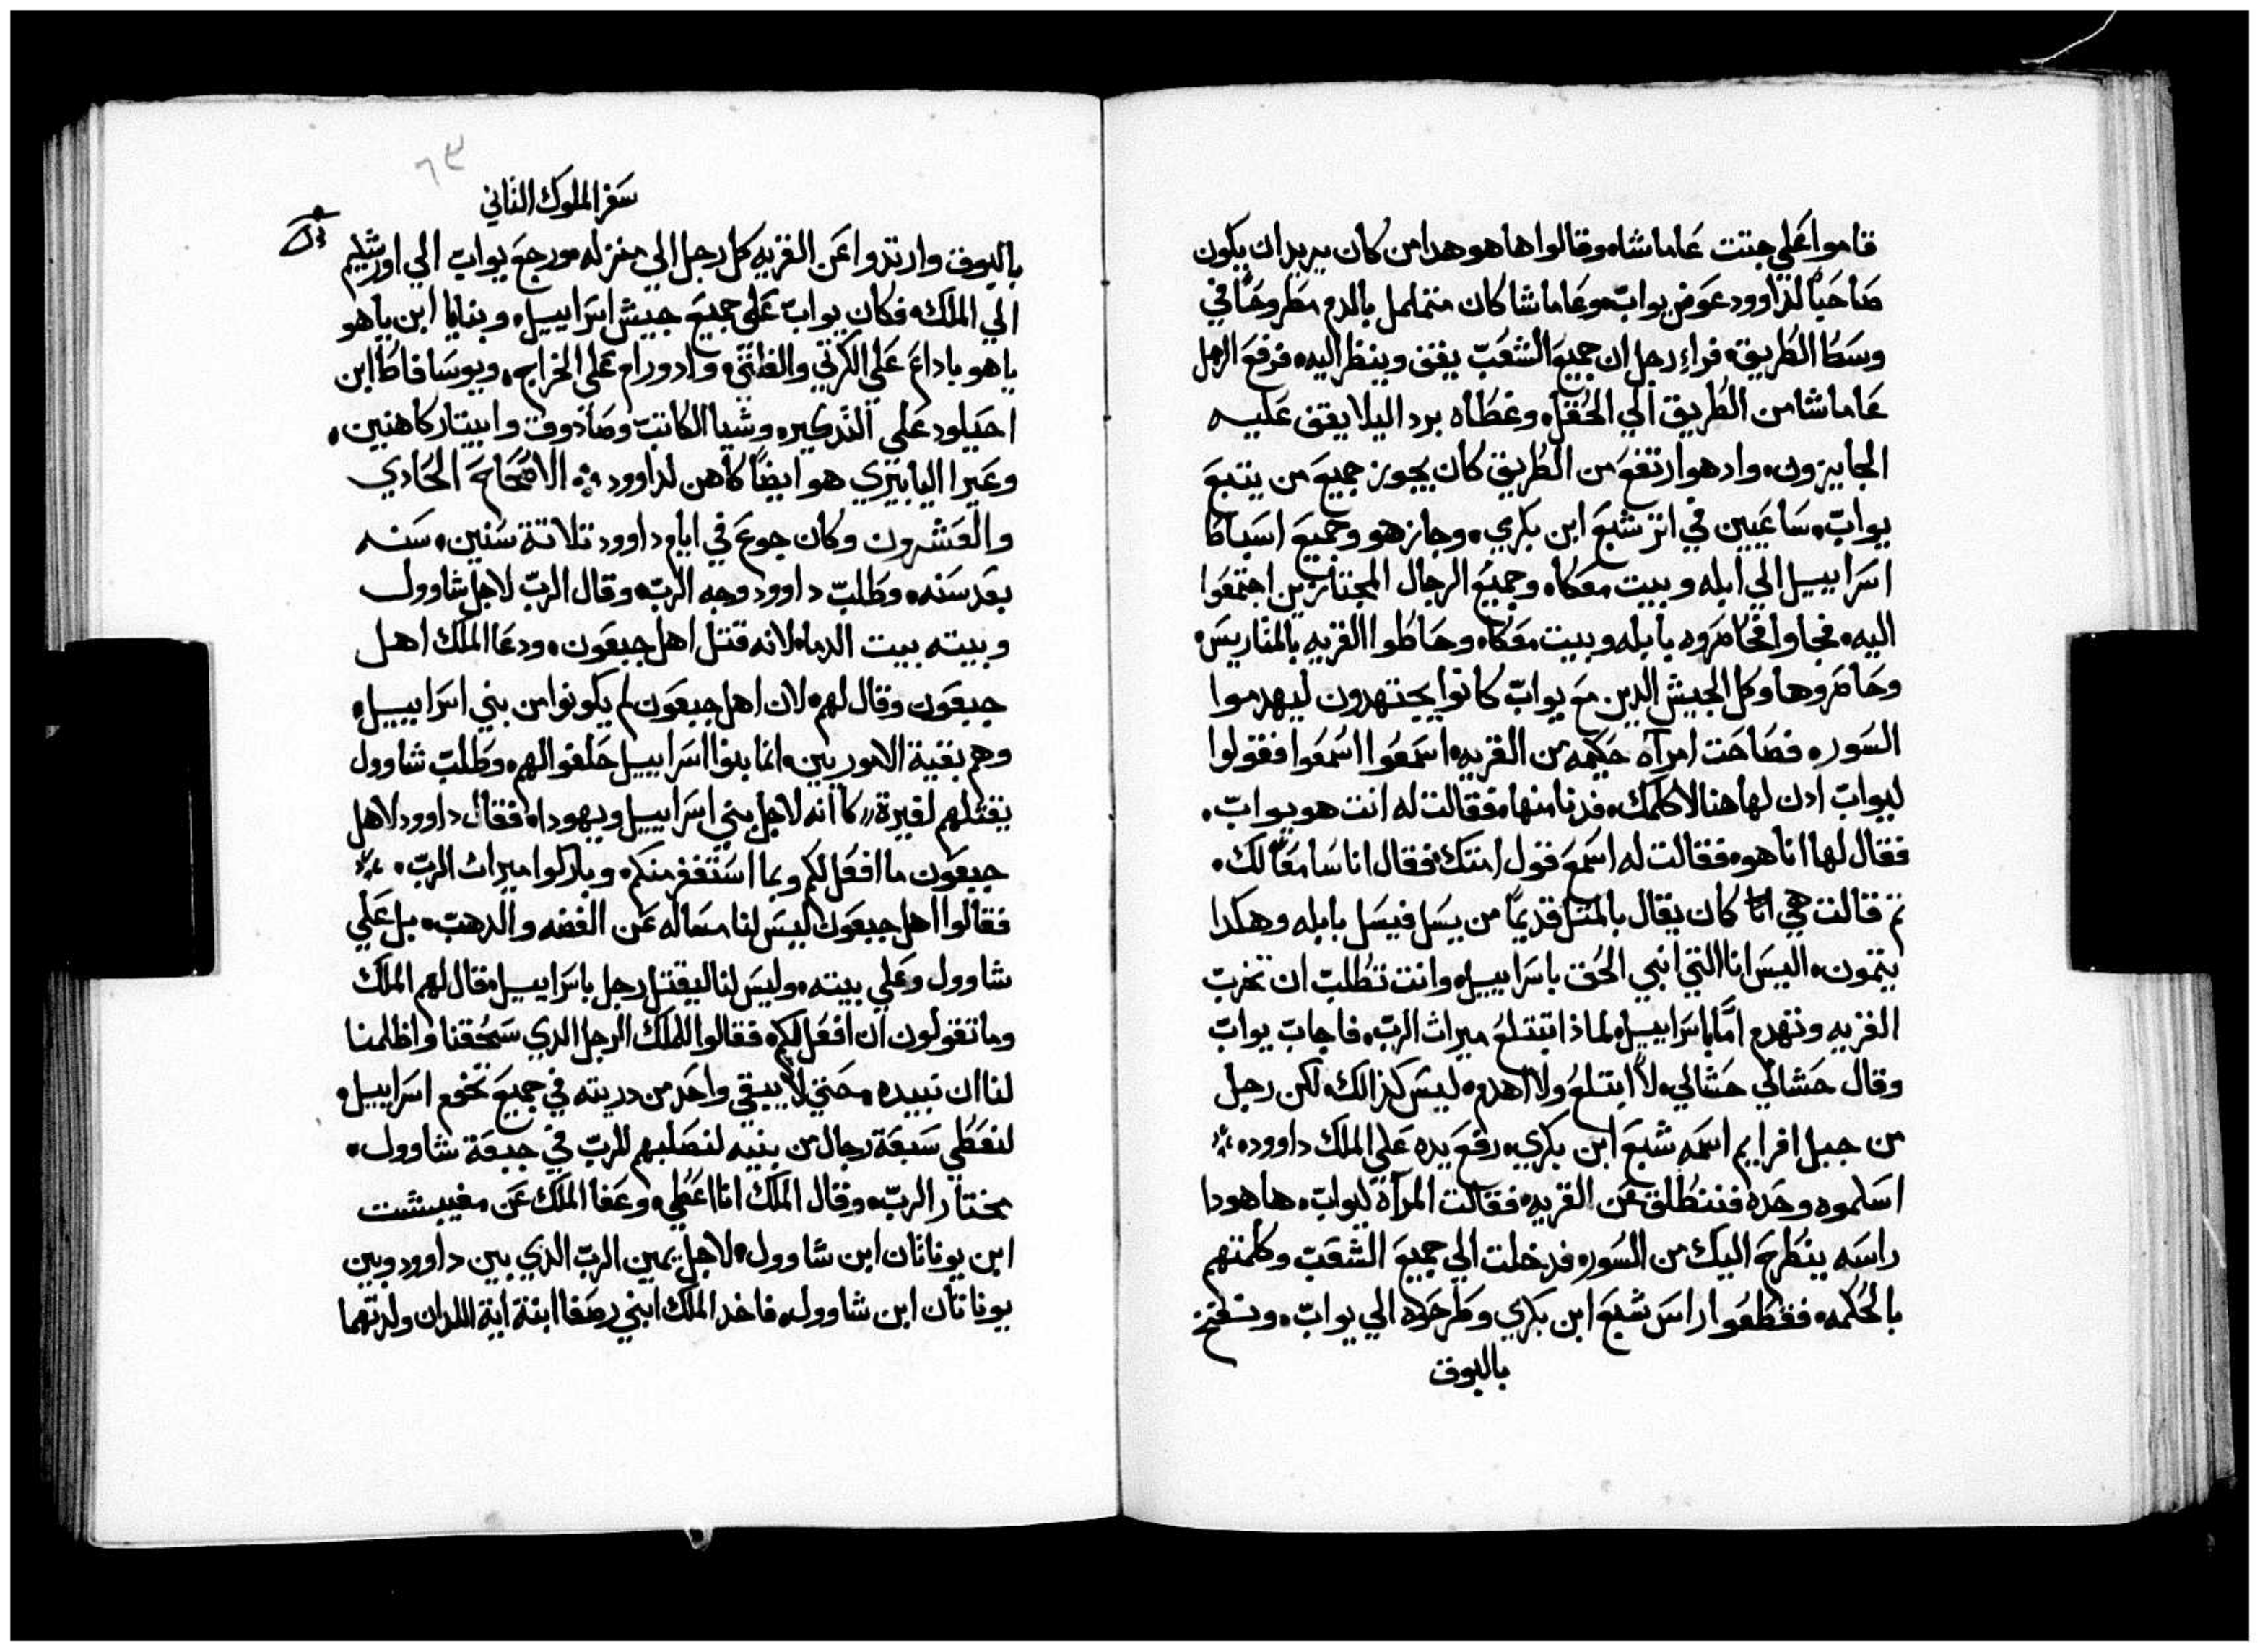 قاموا علي جتت عاماشا، وقالوا ها هو هدا من كان يريد ان يكون
صاحباً لداوود عوض يواب، وعاماشا كان متململ بالدم مطروحاً في
وسط الطريق، فراء رجل ان جميع الشعب يقف وينظر اليه، فرفع الرجل
عاماشا من الطريق الي الحقل، وغطاه برد اليلا يقف عليه
الجايزون، واد هو ارتفع من الطريق كان يجوز جميع من يتبع
يواب، ساعيين في اتر شبع ابن بكري، وجاز هو وجميع اسباط
اسراييل الي ابله وبيت معكا، وجميع الرجال المجتازين اجتمعوا
اليه، فجاوا فحاصروه بابله وبيت معكا، وحاطوا القريه بالمتاريس،
وحاصروها وكل الجيش الدين مع يواب كانوا يجتهدون ليهدموا
السور، فصاحت امرآه حكيمه من القريه، اسمعوا اسمعوا فقولوا
ليواب ادن لها هنا لاكلمك، فدنا منها، فقالت له انت هو يواب،
فقال لها انا هو، فقالت له اسمع قول امتك، فقال انا سامعاً لك،
تم قالت هي انا كان يقال بالمتل قديماً من يسل فيسل بابله وهكدا
يتمون، اليس انا التي انبي الحق باسراييل، وانت تطلب ان تخرب
القريه وتهدم اماً باسراييل، لماذا تبتلع ميراث الرب، فاجاب يواب
وقال حشالي حشالي، لا ابتلع ولا اهدم، ليس كذالك، لكن رجل
من جبل افرايم اسمه شبع ابن بكري، رفع يده علي الملك داوود،
اسلموه وحده فننطلق عن القريه، فقالت المرآه ليواب، ها هودا
راسه ينطرح اليك من السور، فدخلت الي جميع الشعب وكلمتهم
بالحكمه، فقطعوا راس شبع ابن بكري وطرحوه الي يواب،
بالبوق
٦٣
سفر الملوك الثاني
بالبوق وارتدوا عن القريه كل رجل الي منزله، ورجع يواب الي اورشليم
الي الملك، فكان يواب علي جميع جيش اسراييل، وبنايا ابن ياهو
ياهو باداع علي الكرتي والفلتي، وادورام علي الخراج، ويوسافاط ابن
احيلود علي التدكير، وشيا الكاتب وصادوق وابيتار كاهنين،
وعيرا اليابيري هو ايضاً كاهن لداوود، الاصحاح الحادي
والعشرون وكان جوع في ايام داوود تلاتة سنين، سنه
بعد سنه، وطلب داوود وجه الرب، وقال الرب لاجل شاوول
وبيته بيت الدما، لانه قتل اهل جبعون، ودعا الملك اهل
جبعون وقال لهم، لان اهل جبعون لم يكونوا من بني اسراييل،
وهم بقية الاموريين، انما بنوا اسراييل حلفوا لهم، وطلب شاوول
يقتلهم لغيرة، كاانه لاجل بني اسراييل ويهودا، فقال داوود لاهل
جبعون ما افعل لكم وبما استغفر منكم، وباركوا ميرات الرب،
فقالوا اهل جبعون ليس لنا مساله عن الفضه والدهب، بل علي
شاوول وعلي بيته، وليس لنا ليقتل رجل باسراييل، فقال لهم الملك
وما تقولون ان افعل لكم، فقالوا للملك الرجل الدي سحقنا واظلمنا
لنا ان نبيده، حتي لا يبقي واحد من دريته في جميع تخوم اسراييل،
لنعطي سبعة رجال من بنيه لنصلبهم للرب في جبعة شاوول،
مختار الرب، وقال الملك انا اعطي، وعفا الملك عن مفيبشت
ابن يوناتان ابن شاوول، لاجل يمين الرب الدي بين داوود وبين
يوناتان ابن شاوول، فاخد الملك ابني رصفا ابنة اية اللدان ولدتهما